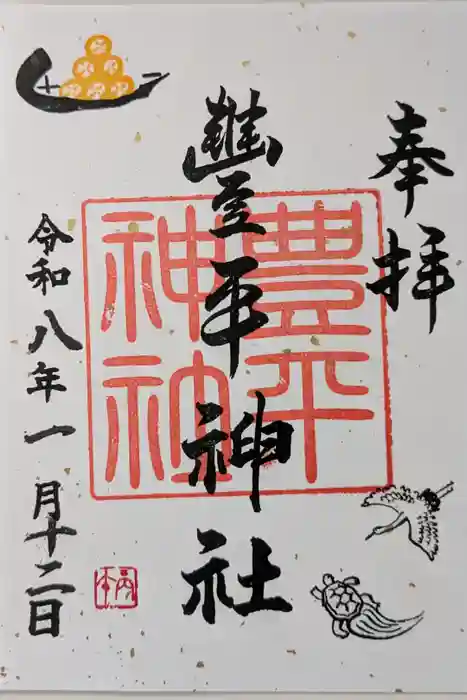 奉拝
豐平神社
豊平
神社
令和八年一月十二日
丙午